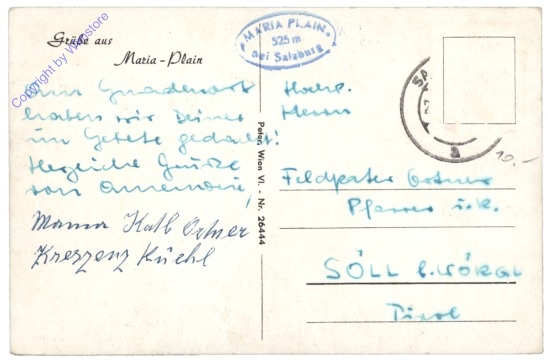 Grüße aus
Maria-Plain
Copyright by Whinstore
MARIA PLAIN
525 m
bei Salzburg
Am Gnadenort
haben wir Deiner
im Gebete gedacht!
Herzliche Grüße
von
Mama Kath Ortner
Kreszenz Küehl
Peter, Wien VI. - Nr. 26444
Hochw.
Herrn
Feldpater Ortner
Pfarrer i. R.
SÖLL b. WÖRGL
Tirol
10.-